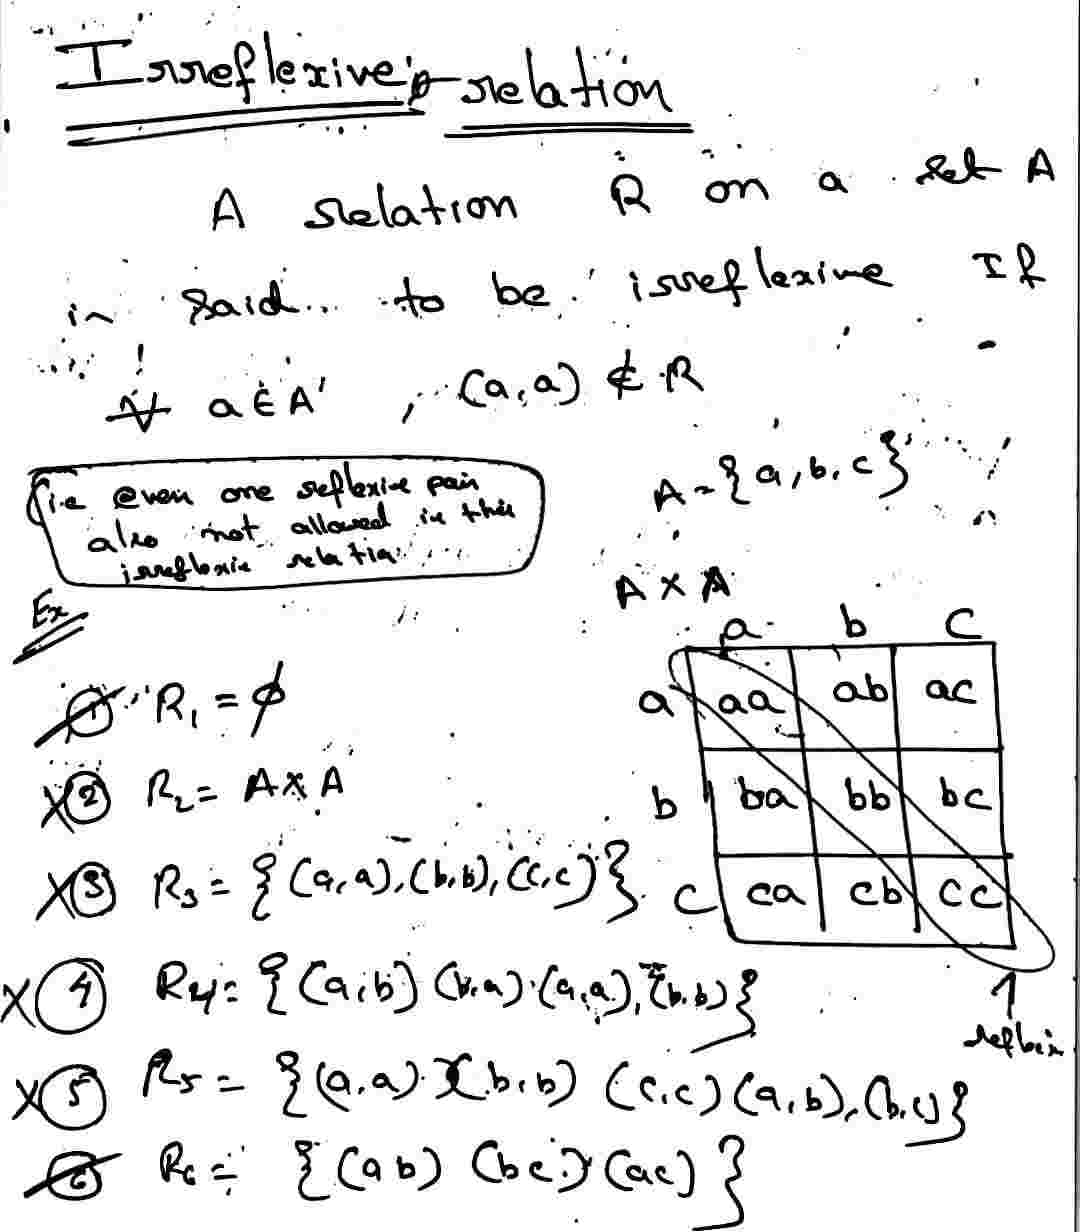 Irreflexive relation
A relation R on a set A
is said to be irreflexive If
∀ a ∈ A , (a,a) ∉ R
i.e even one reflexive pair
also not allowed in this
irreflexive relation
A = {a, b, c}
A × A
Ex
a b c
a aa ab ac
b ba bb bc
c ca cb cc
reflexive
1 R₁ = ϕ
X 2 R₂ = A × A
X 3 R₃ = {(a,a), (b,b), (c,c)}
X 4 R₄ = {(a,b) (b,a) (a,a), (b,b)}
X 5 R₅ = {(a,a) (b,b) (c,c) (a,b), (b,c)}
6 R₆ = {(ab) (bc) (ac)}